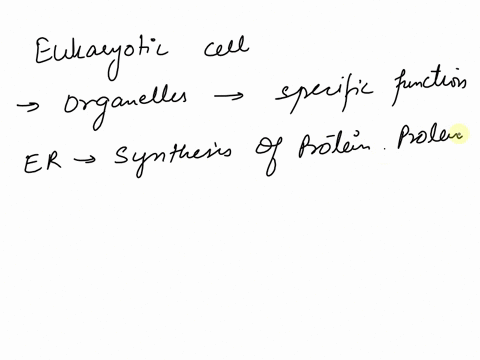 Eukaryotic cell
→ Organelles → specific function
ER → Synthesis Of Protein. Protein